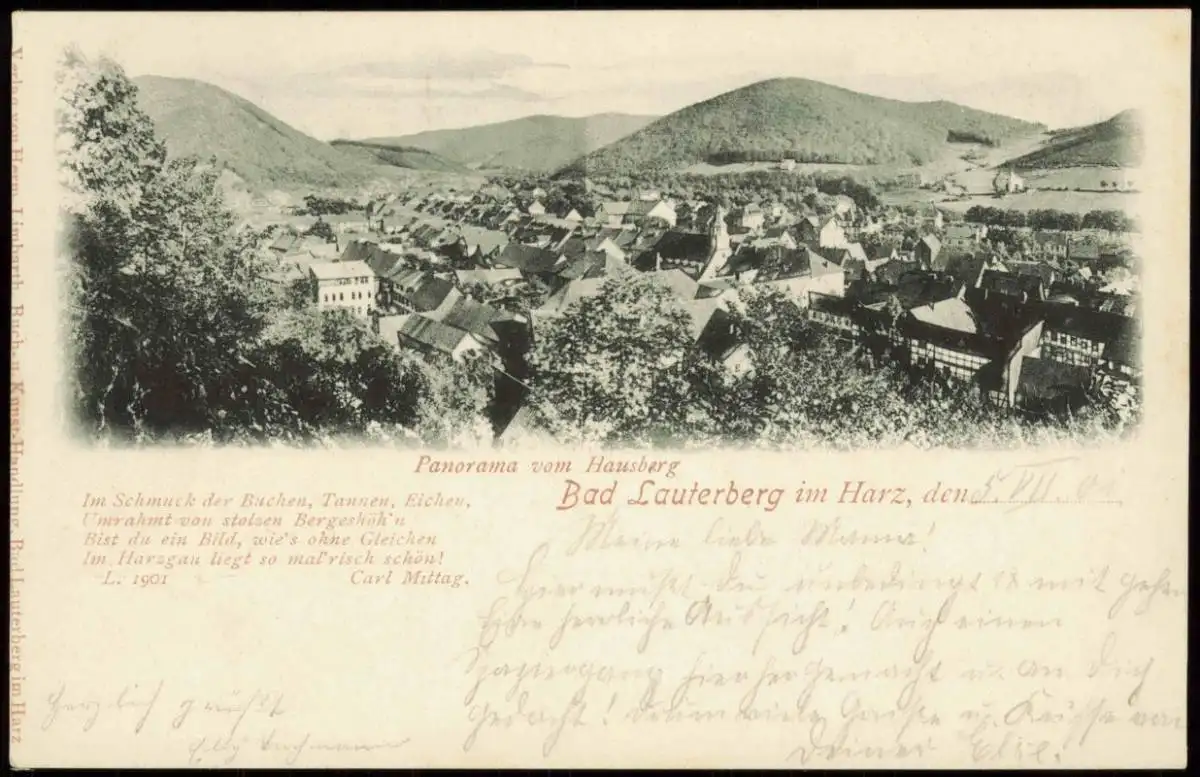 Verlag von Herm. Limbarth, Buch- u. Kunst-Handlung, Bad Lauterberg im Harz
Panorama vom Hausberg
Bad Lauterberg im Harz, den 5. VII. 01
Im Schmuck der Buchen, Tannen, Eichen,
Umrahmt von stolzen Bergeshöh'n
Bist du ein Bild, wie's ohne Gleichen
Im Harzgau liegt so mal'risch schön!
L. 1901 Carl Mittag.
Meine liebe Mama!
Hier mußt Du unbedingt mit gehen
Eine herrliche Aussicht! Auf einen
Spaziergang hierher gemacht u. an Dich
gedacht! Darum viele Grüße u. Küsse von
Deiner Elsie.
Herzlich grüßt